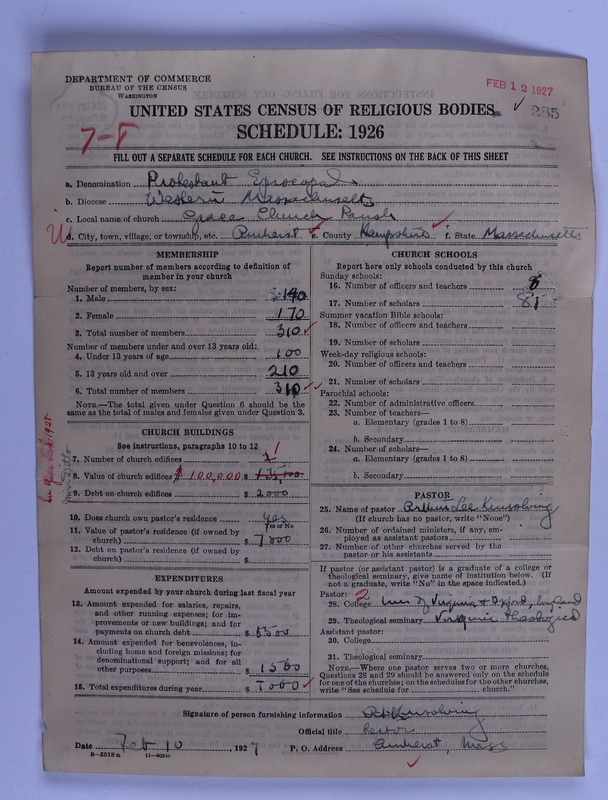 DEPARTMENT OF COMMERCE
BUREAU OF THE CENSUS
WASHINGTON
FEB 12 1927
285
UNITED STATES CENSUS OF RELIGIOUS BODIES
SCHEDULE: 1926
7-8
FILL OUT A SEPARATE SCHEDULE FOR EACH CHURCH. SEE INSTRUCTIONS ON THE BACK OF THIS SHEET
a. Denomination Protestant Episcopal
b. Diocese Western Massachusetts
c. Local name of church Grace Church Parish
d. City, town, village, or township, etc. Amherst e. County Hampshire f. State Massachusetts
MEMBERSHIP
Report number of members according to definition of
member in your church
Number of members, by sex:
1. Male 140
2. Female 170
3. Total number of members 310
Number of members under and over 13 years old:
4. Under 13 years of age 100
5. 13 years old and over 210
6. Total number of members 310
NOTE.—The total given under Question 6 should be the
same as the total of males and females given under Question 3.
CHURCH BUILDINGS
See instructions, paragraphs 10 to 12
7. Number of church edifices 1
8. Value of church edifices $ 100,000 $ 135,000
9. Debt on church edifices $ 2000
10. Does church own pastor's residence yes
Yes or No
11. Value of pastor's residence (if owned by
church) $ 7000
12. Debt on pastor's residence (if owned by
church) $
EXPENDITURES
Amount expended by your church during last fiscal year
13. Amount expended for salaries, repairs,
and other running expenses; for im-
provements or new buildings; and for
payments on church debt $ 5500
14. Amount expended for benevolences, in-
cluding home and foreign missions; for
denominational support; and for all
other purposes $ 1500
15. Total expenditures during year $ 7000
CHURCH SCHOOLS
Report here only schools conducted by this church
Sunday schools:
16. Number of officers and teachers 8
17. Number of scholars 81
Summer vacation Bible schools:
18. Number of officers and teachers
19. Number of scholars
Week-day religious schools:
20. Number of officers and teachers
21. Number of scholars
Parochial schools:
22. Number of administrative officers
23. Number of teachers—
a. Elementary (grades 1 to 8)
b. Secondary
24. Number of scholars—
a. Elementary (grades 1 to 8)
b. Secondary
PASTOR
25. Name of pastor Arthur Lee Kinsolving
(If church has no pastor, write "None")
26. Number of ordained ministers, if any, em-
ployed as assistant pastors
27. Number of other churches served by the
pastor or his assistants
If pastor (or assistant pastor) is a graduate of a college or
theological seminary, give name of institution below. (If
not a graduate, write "No" in the space indicated.)
Pastor: 2
28. College Univ. of Virginia & Oxford, England
29. Theological seminary Virginia Theological
Assistant pastor:
30. College
31. Theological seminary
NOTE.—Where one pastor serves two or more churches,
Questions 28 and 29 should be answered only on the schedule
for one of the churches; on the schedules for the other churches,
write "See schedule for church."
Signature of person furnishing information A L Kinsolving
Official title Rector
Date Feb 10, 1927 P. O. Address Amherst, Mass
8-5518a 11-9034a